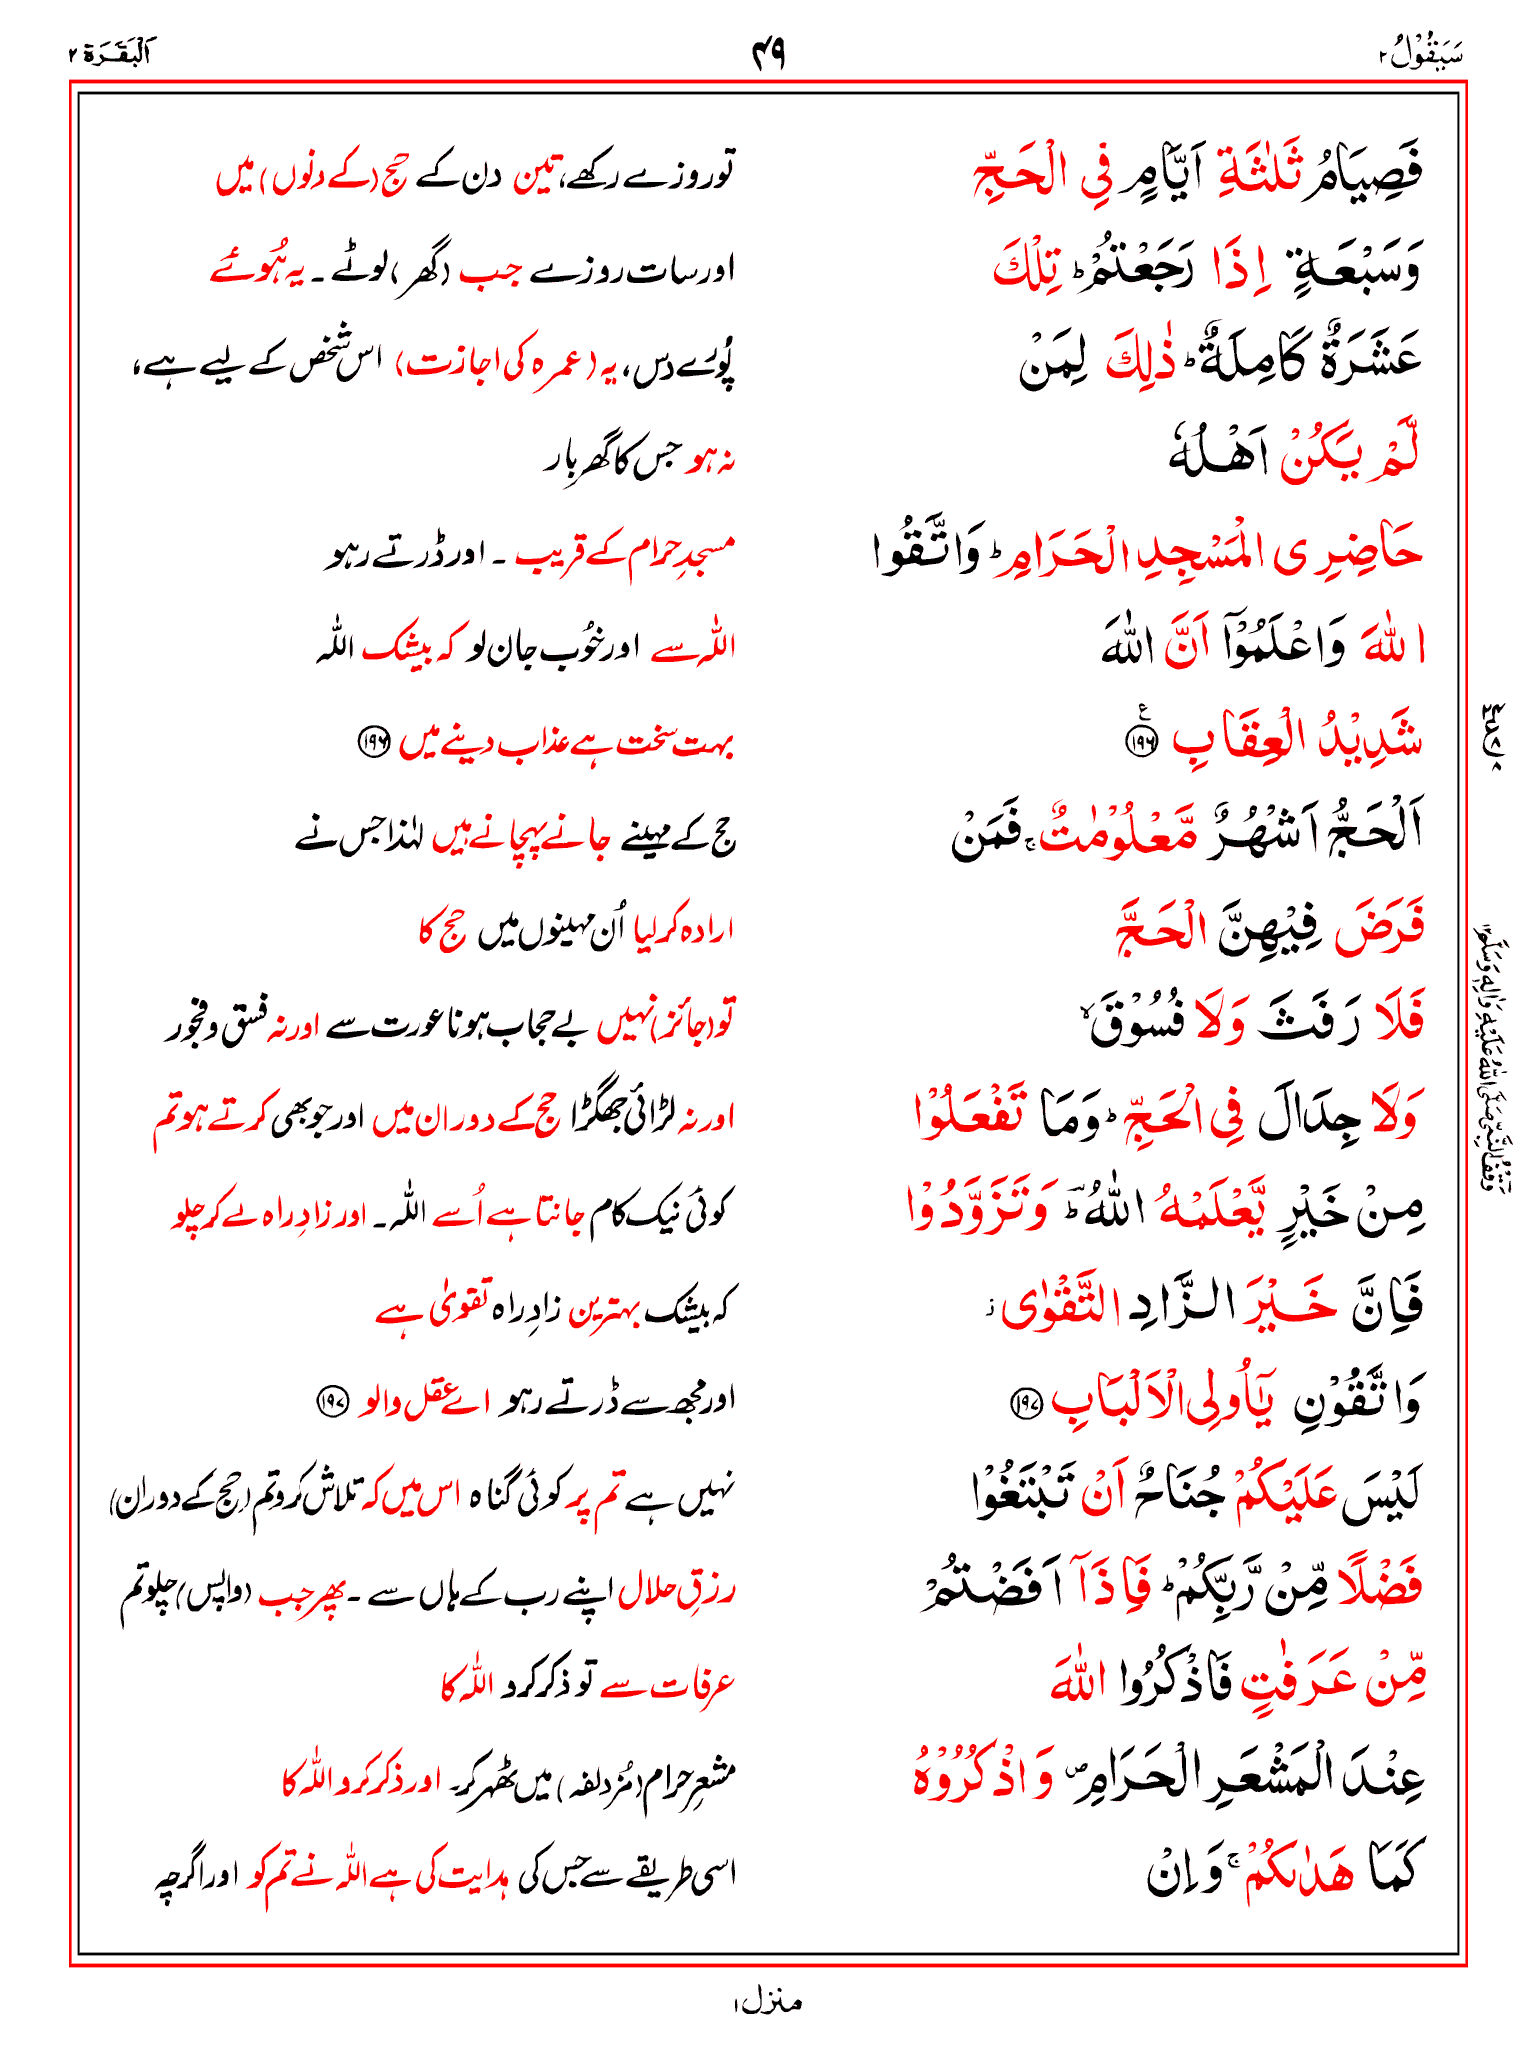 سَيَقُوْلُ ٢
٤٩
اَلْبَقَرَة ٢
فَصِيَامُ ثَلٰثَةِ اَيَّامٍ فِي الْحَجِّ
تو روزے رکھے، تین دن کے حج (کے دنوں) میں
وَسَبْعَةٍ اِذَا رَجَعْتُمْ ؕ تِلْكَ
اور سات روزے جب (گھر) لوٹے ۔ یہ ہُوئے
عَشَرَةٌ كَامِلَةٌ ؕ ذٰلِكَ لِمَنْ
پُورے دس، یہ (عمرہ کی اجازت) اس شخص کے لیے ہے،
لَّمْ يَكُنْ اَهْلُهٗ
نہ ہو جس کا گھر بار
حَاضِرِي الْمَسْجِدِ الْحَرَامِ ؕ وَاتَّقُوا
مسجدِ حرام کے قریب ۔ اور ڈرتے رہو
اللّٰهَ وَاعْلَمُوْٓا اَنَّ اللّٰهَ
اللہ سے اور خُوب جان لو کہ بیشک اللہ
شَدِيْدُ الْعِقَابِ ۝١٩٦ ع
بہت سخت ہے عذاب دینے میں ۝١٩٦
اَلْحَجُّ اَشْهُرٌ مَّعْلُوْمٰتٌ ۚ فَمَنْ
حج کے مہینے جانے پہچانے ہیں لہٰذا جس نے
فَرَضَ فِيْهِنَّ الْحَجَّ
ارادہ کر لیا اُن مہینوں میں حج کا
فَلَا رَفَثَ وَلَا فُسُوْقَ ۙ
تو (جائز) نہیں بے حجاب ہونا عورت سے اور نہ فسق و فجور
وَلَا جِدَالَ فِي الْحَجِّ ؕ وَمَا تَفْعَلُوْا
اور نہ لڑائی جھگڑا حج کے دوران میں اور جو بھی کرتے ہو تم
مِنْ خَيْرٍ يَّعْلَمْهُ اللّٰهُ ؕ وَتَزَوَّدُوْا
کوئی نیک کام جانتا ہے اُسے اللہ ۔ اور زادِ راہ لے کر چلو
فَاِنَّ خَيْرَ الزَّادِ التَّقْوٰى ز
کہ بیشک بہترین زادِ راہ تقویٰ ہے
وَاتَّقُوْنِ يٰٓاُولِي الْاَلْبَابِ ۝١٩٧
اور مجھ سے ڈرتے رہو اے عقل والو ۝١٩٧
لَيْسَ عَلَيْكُمْ جُنَاحٌ اَنْ تَبْتَغُوْا
نہیں ہے تم پر کوئی گناہ اس میں کہ تلاش کرو تم (حج کے دوران)
فَضْلًا مِّنْ رَّبِّكُمْ ؕ فَاِذَآ اَفَضْتُمْ
رزقِ حلال اپنے رب کے ہاں سے ۔ پھر جب (واپس) چلو تم
مِّنْ عَرَفٰتٍ فَاذْكُرُوا اللّٰهَ
عرفات سے تو ذکر کرد اللہ کا
عِنْدَ الْمَشْعَرِ الْحَرَامِ ۪ وَاذْكُرُوْهُ
مشعرِ حرام (مُزدلفہ) میں ٹھہر کر۔ اور ذکر کرد اللہ کا
كَمَا هَدٰىكُمْ ۚ وَاِنْ
اسی طریقے سے جس کی ہدایت کی ہے اللہ نے تم کو اور اگرچہ
وَقْفُ النَّبِيِّ صَلَّى اللّٰهُ عَلَيْهِ وَاٰلِهٖ وَسَلَّمَ ١٢
منزل ١